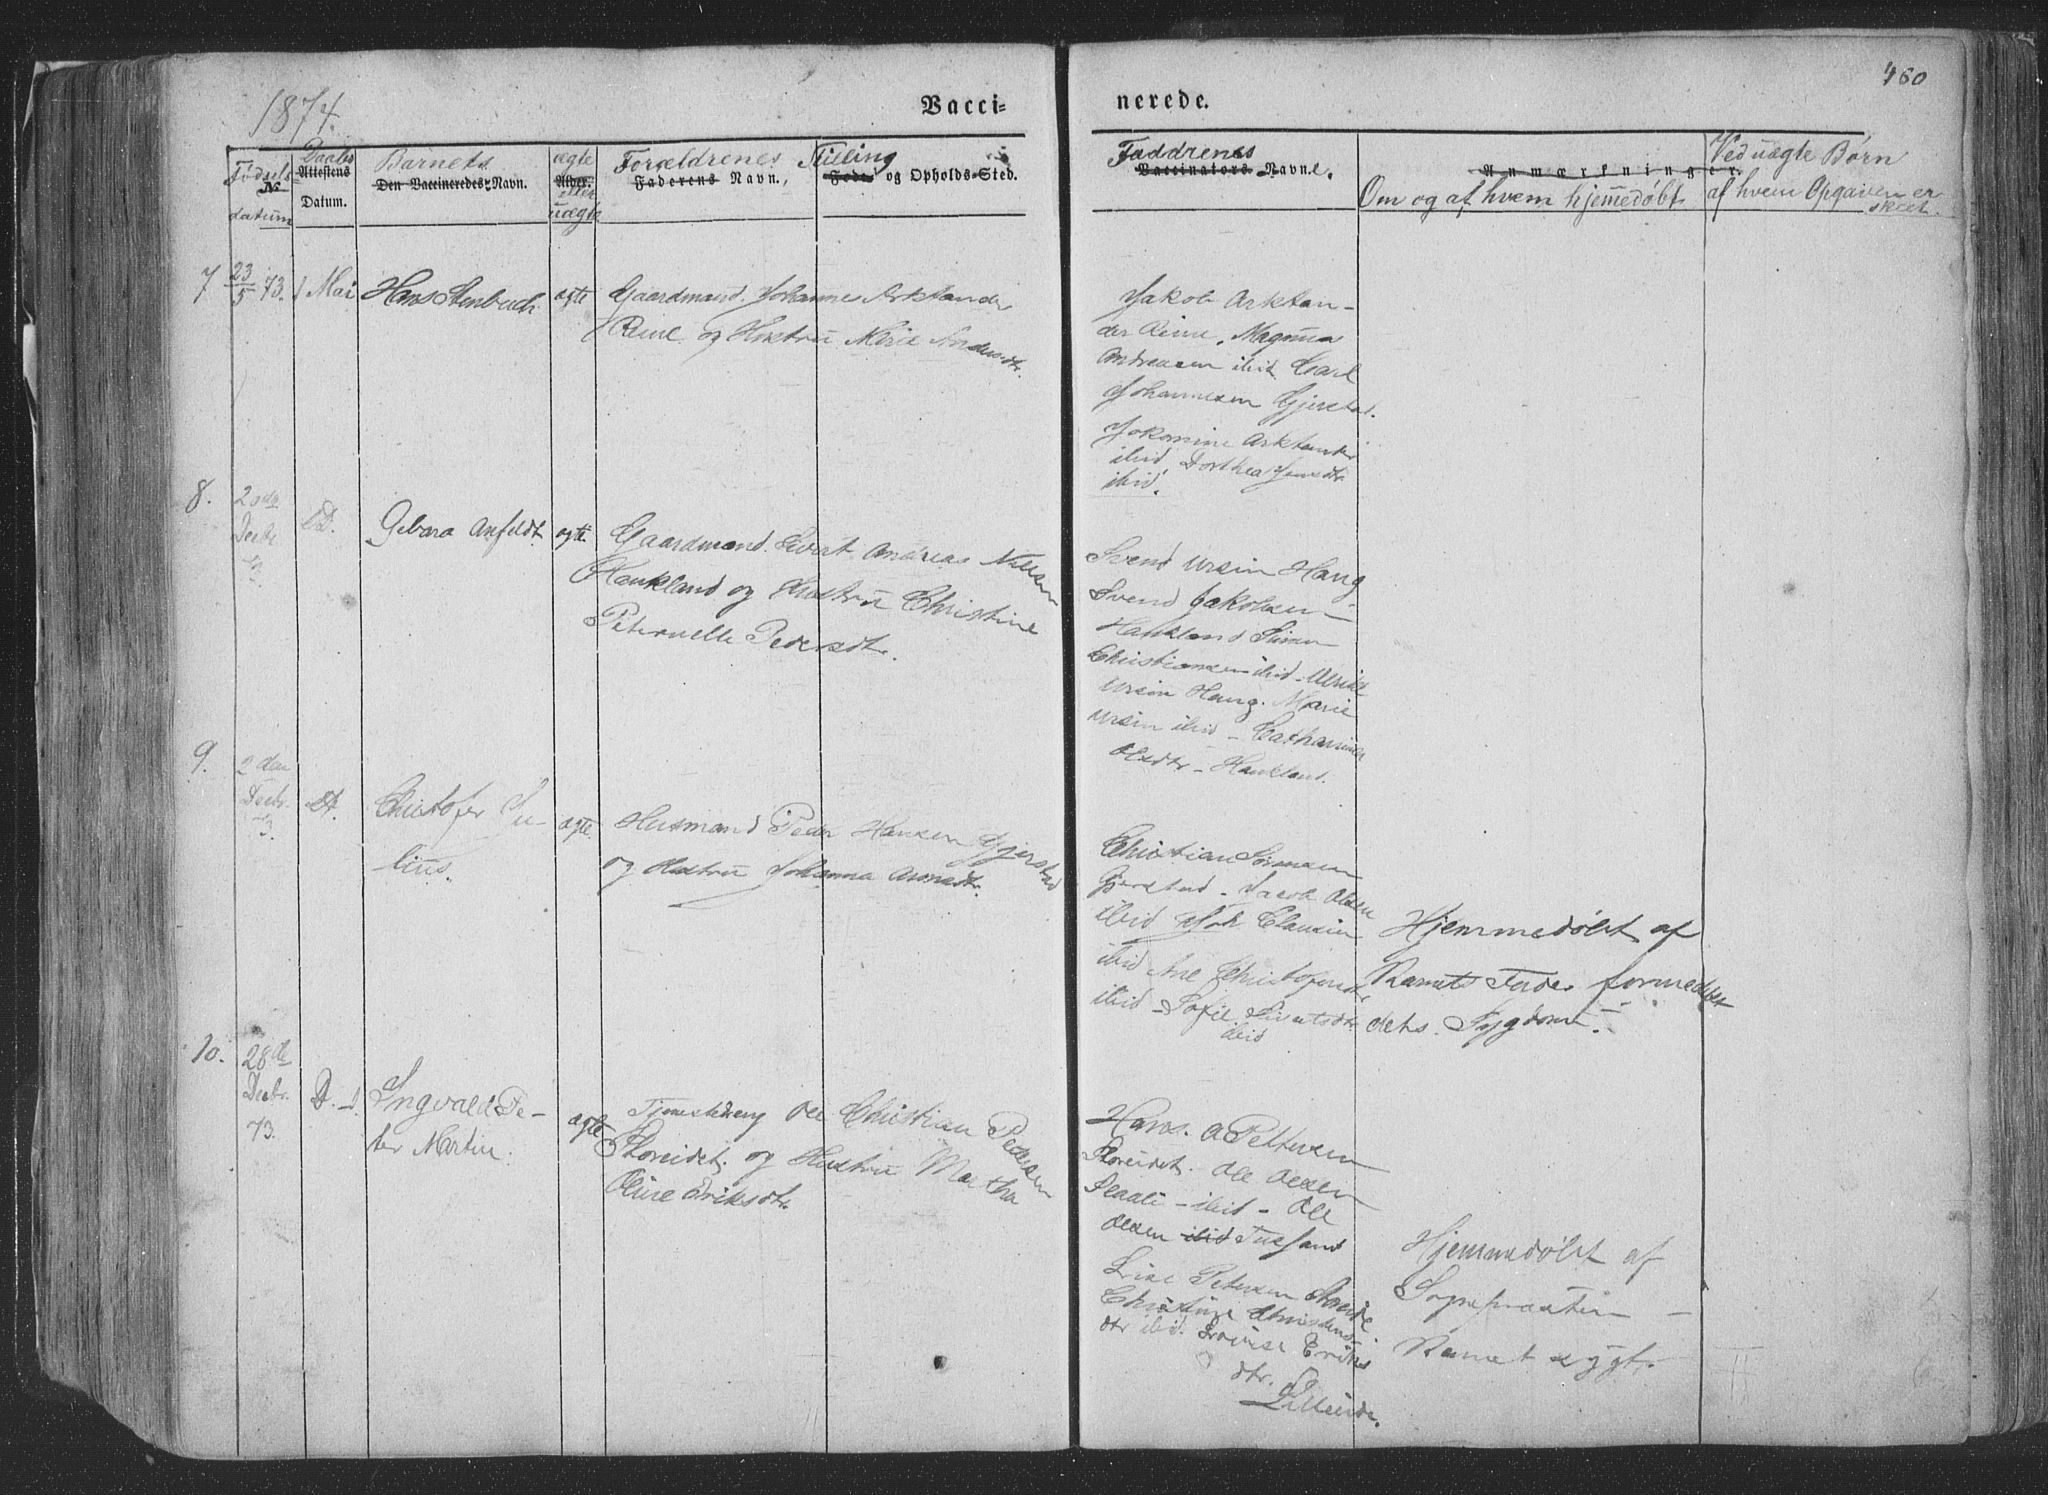 1874.
Vacci-
nerede.
460
Fødsels
No
datum
Daabs
Attestens
Datum.
Barnets
Den Vaccineredes Navn.
ægte
Alder.
eller
uægte
Forældrenes Stilling
Faderens Navn, Føde og Opholds-Sted.
Faddrenes
Vaccinators Navne.
Anmærkninger.
Om og af hvem hjemmedøbt
Ved uægte Børn
af hvem Opgaven er
skeet.
7 23/5 73. 1 Mai Hans Stenbuch ægte
Gaardmand Johannes Arktander
Reine og Hustru Andersdtr.
Jakob Arktan-
der Reine, Magnus
Andreasen ibid Carl
Johannesen Gjerstad.
Arktander
ibid, Dorthea Jensdtr
ibid.
8. 2den
Decbr
D. Gebara Anfeldt ægte.
Gaardmand Sivert Andreas Nilsen
Haukland og Hustru Christine
Peternelle Pedersdtr.
Svend Ursin Haug
Svend Jakobsen
Haukland Simon
Christiansen ibid - Ulrikke
Ursin Haug. Marie
Ursin ibid - Catharina
Olsdtr - Haukland.
9. 2den
Decbr.
73. D. Christofer Ju-
lius. ægte.
Husmand Peder Hansen Gjerstad
og Hustru Johanna
Christian Sørensen
Gjerstad - Jacob Olsen
ibid Joh Clausen
ibid Ane Christofersdtr
ibid - Sofie Sivertsdtr
ibid
Hjemmedøbt af
Barnets Fader formedelst
dets Sygdom.
10. 28de
Decbr.
73. D. d. Ingvald Pe-
ter Martin. ægte
Ole Christian Pedersen
Storeidet og Hustru Martha
Oline Eriksdtr.
Hans A Pettersen
Storeidet. Ole Olsen
ibid - Ole
Olsen ibid
Petersen
Christine Christens-
dtr ibid. Lovise Eriks
dtr.
Lilleeide.
Hjemmedøbt af
Sognepræsten -
Barnet sygt.